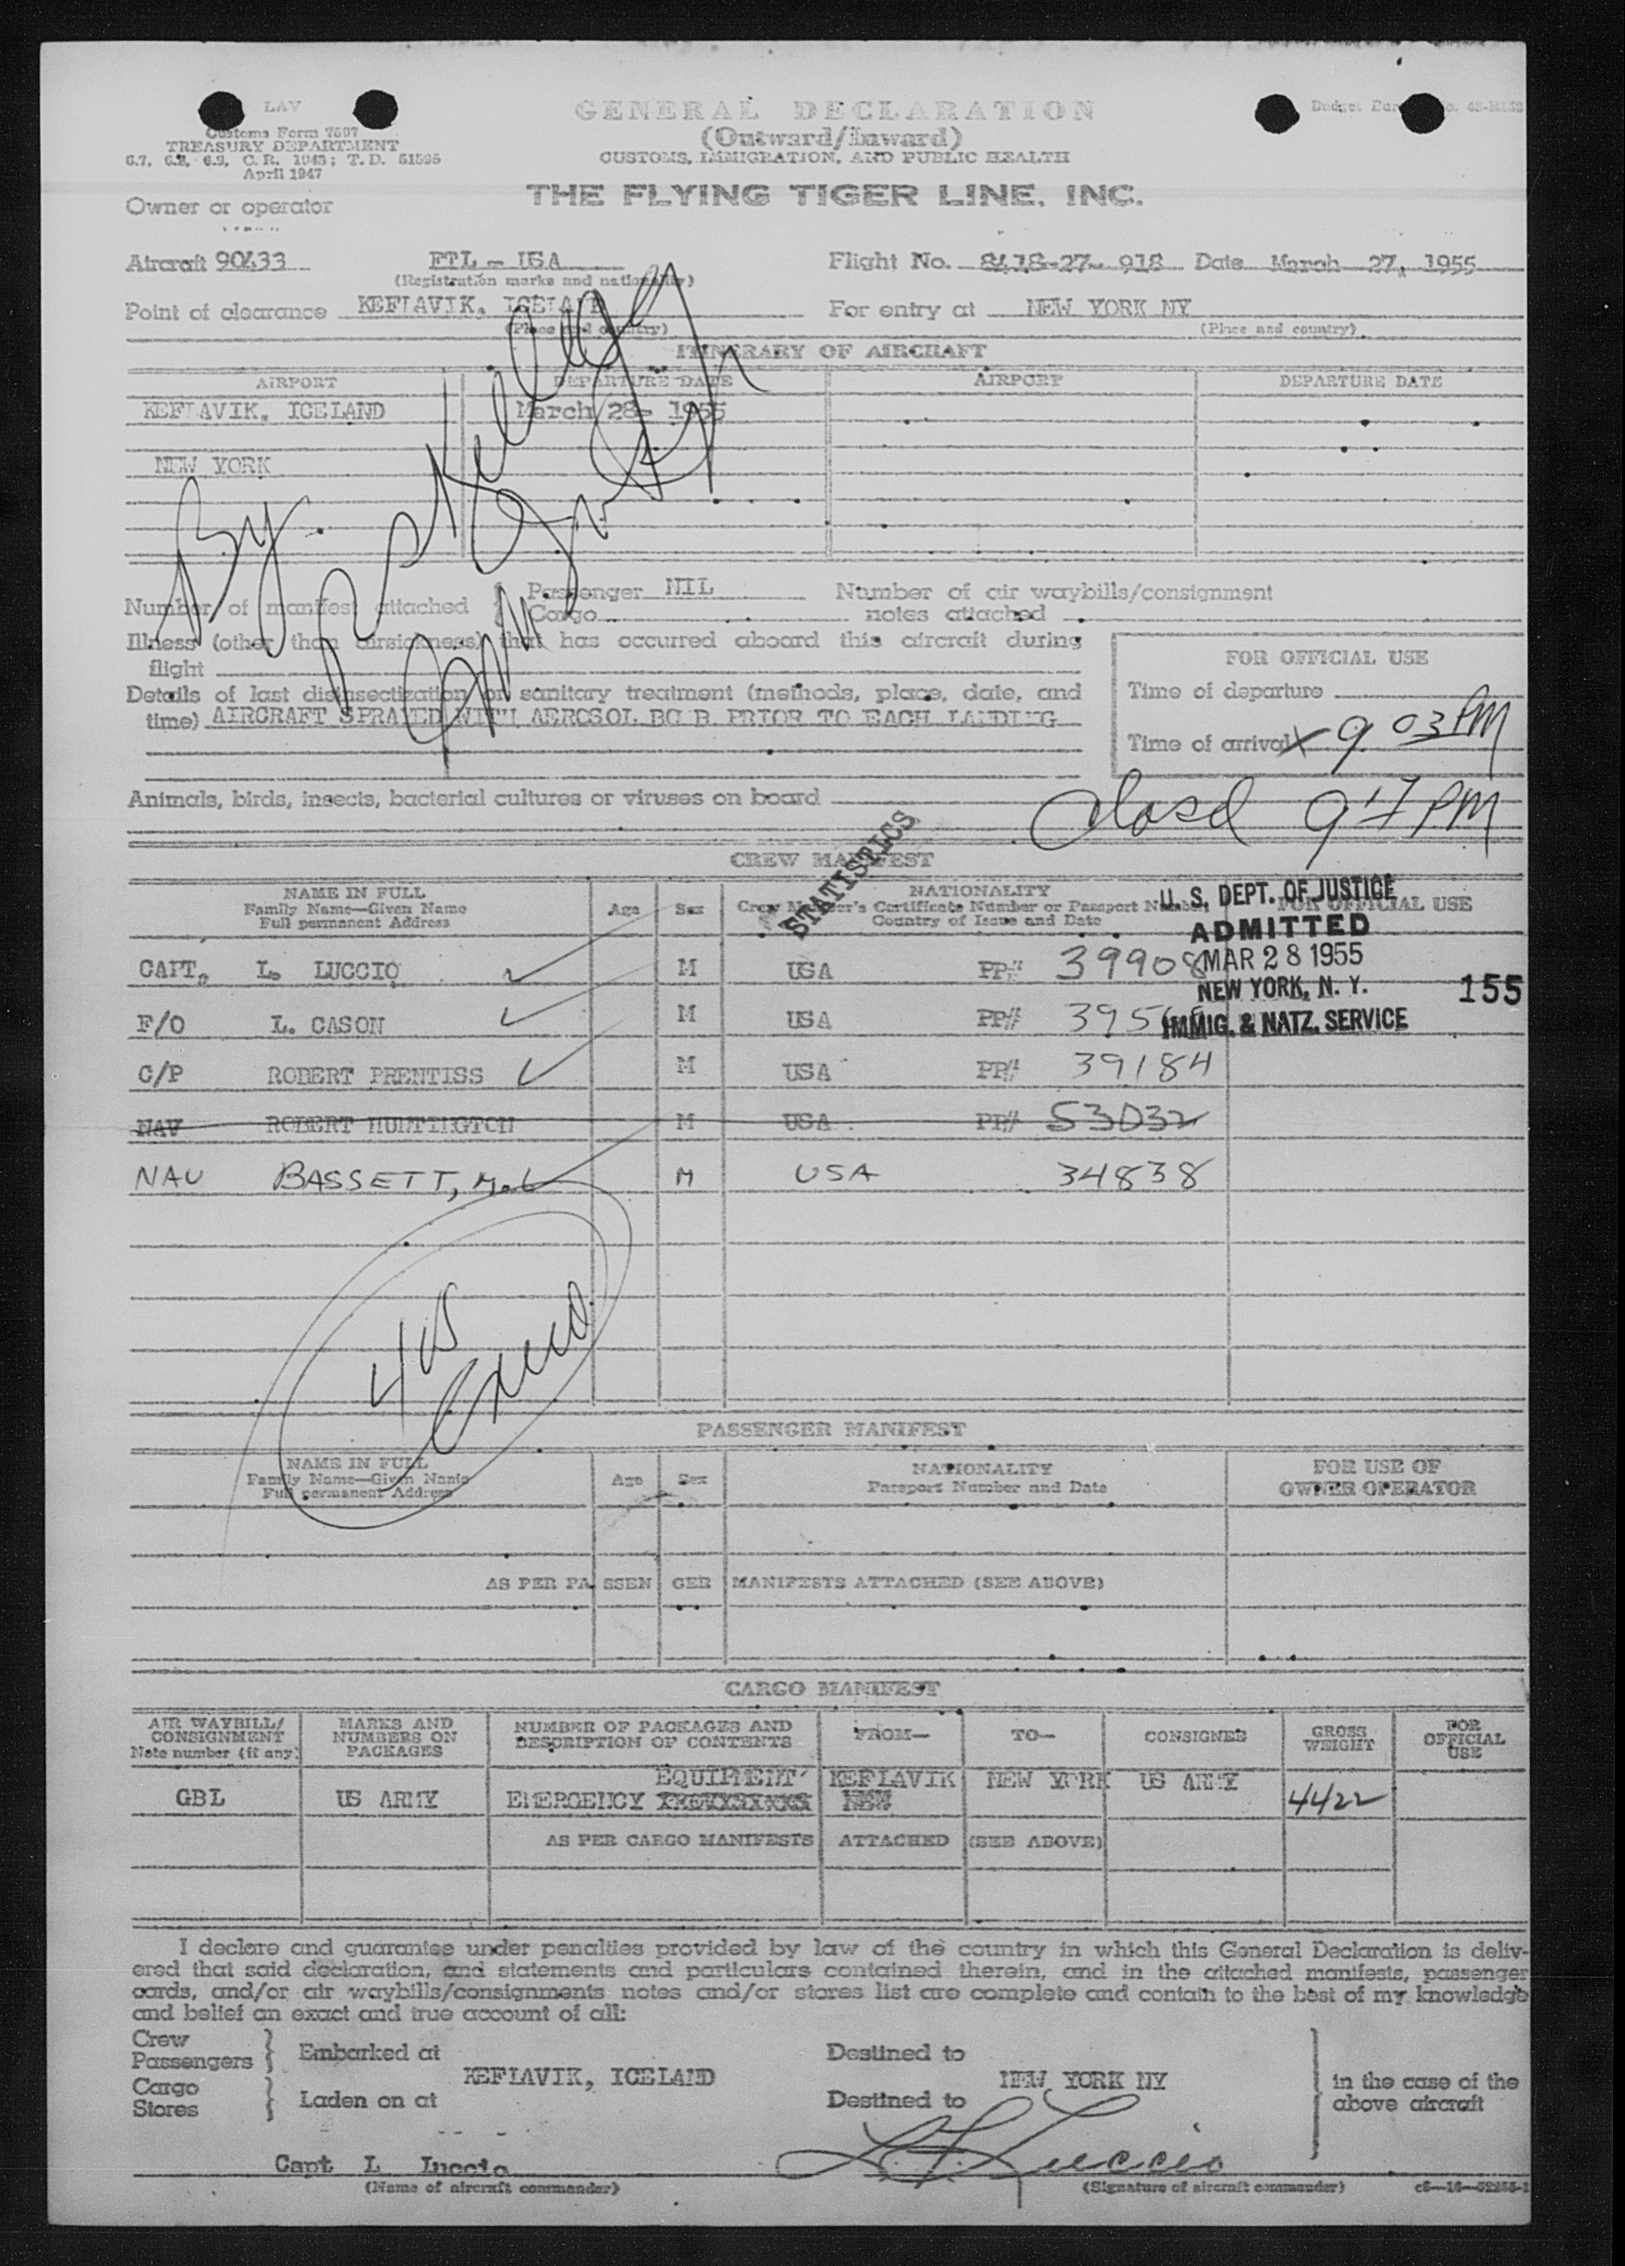 LAV
Customs Form 7507
TREASURY DEPARTMENT
6.7, 6.8, 6.9, C. R. 1943; T. D. 51595
April 1947
GENERAL DECLARATION
(Outward/Inward)
CUSTOMS, IMMIGRATION, AND PUBLIC HEALTH
THE FLYING TIGER LINE, INC.
Owner or operator
Aircraft 90433 FTL - USA Flight No. 8418-27- 918 Date March 27, 1955
(Registration marks and nationality)
Point of clearance KEFLAVIK, ICELAND For entry at NEW YORK NY
(Place and country) (Place and country)
ITINERARY OF AIRCRAFT
AIRPORT DEPARTURE DATE AIRPORT DEPARTURE DATE
KEFLAVIK, ICELAND March 28- 1955
NEW YORK
By
Number of manifest attached { Passenger NIL Number of air waybills/consignment
Cargo notes attached
Illness (other than airsickness) that has occurred aboard this aircraft during
flight
FOR OFFICIAL USE
Details of last disinsectization or sanitary treatment (methods, place, date, and
time) AIRCRAFT SPRAYED WITH AEROSOL BOMB PRIOR TO EACH LANDING
Time of departure
Time of arrival 9 03 PM
Animals, birds, insects, bacterial cultures or viruses on board
Closed 9 17 PM
STATISTICS
CREW MANIFEST
NAME IN FULL Age Sex NATIONALITY FOR OFFICIAL USE
Family Name—Given Name Crew Member's Certificate Number or Passport Number
Full permanent Address Country of Issue and Date
U. S. DEPT. OF JUSTICE
ADMITTED
MAR 28 1955
NEW YORK, N. Y.
IMMIG. & NATZ. SERVICE
155
CAPT. L. LUCCIO M USA PP# 39908
F/O L. CASON M USA PP#
C/P ROBERT PRENTISS M USA PP# 39184
NAV ROBERT HUNTINGTON M USA PP# 53032
NAV BASSETT, M.L M USA 34838
4 US
PASSENGER MANIFEST
NAME IN FULL Age Sex NATIONALITY FOR USE OF
Family Name—Given Name Passport Number and Date OWNER OPERATOR
Full permanent Address
AS PER PASSENGER MANIFESTS ATTACHED (SEE ABOVE)
CARGO MANIFEST
AIR WAYBILL/ CONSIGNMENT Note number (if any) MARKS AND NUMBERS ON PACKAGES NUMBER OF PACKAGES AND DESCRIPTION OF CONTENTS FROM— TO— CONSIGNEE GROSS WEIGHT FOR OFFICIAL USE
GBL US ARMY EMERGENCY EQUIPMENT KEFLAVIK NEW YORK US ARMY 4422
AS PER CARGO MANIFESTS ATTACHED (SEE ABOVE)
I declare and guarantee under penalties provided by law of the country in which this General Declaration is deliv-
ered that said declaration, and statements and particulars contained therein, and in the attached manifests, passenger
cards, and/or air waybills/consignments notes and/or stores list are complete and contain to the best of my knowledge
and belief an exact and true account of all:
Crew
Passengers } Embarked at Destined to
KEFLAVIK, ICELAND NEW YORK NY in the case of the
Cargo
Stores } Laden on at Destined to above aircraft
Capt L Luccio L. F. Luccio
(Name of aircraft commander) (Signature of aircraft commander)